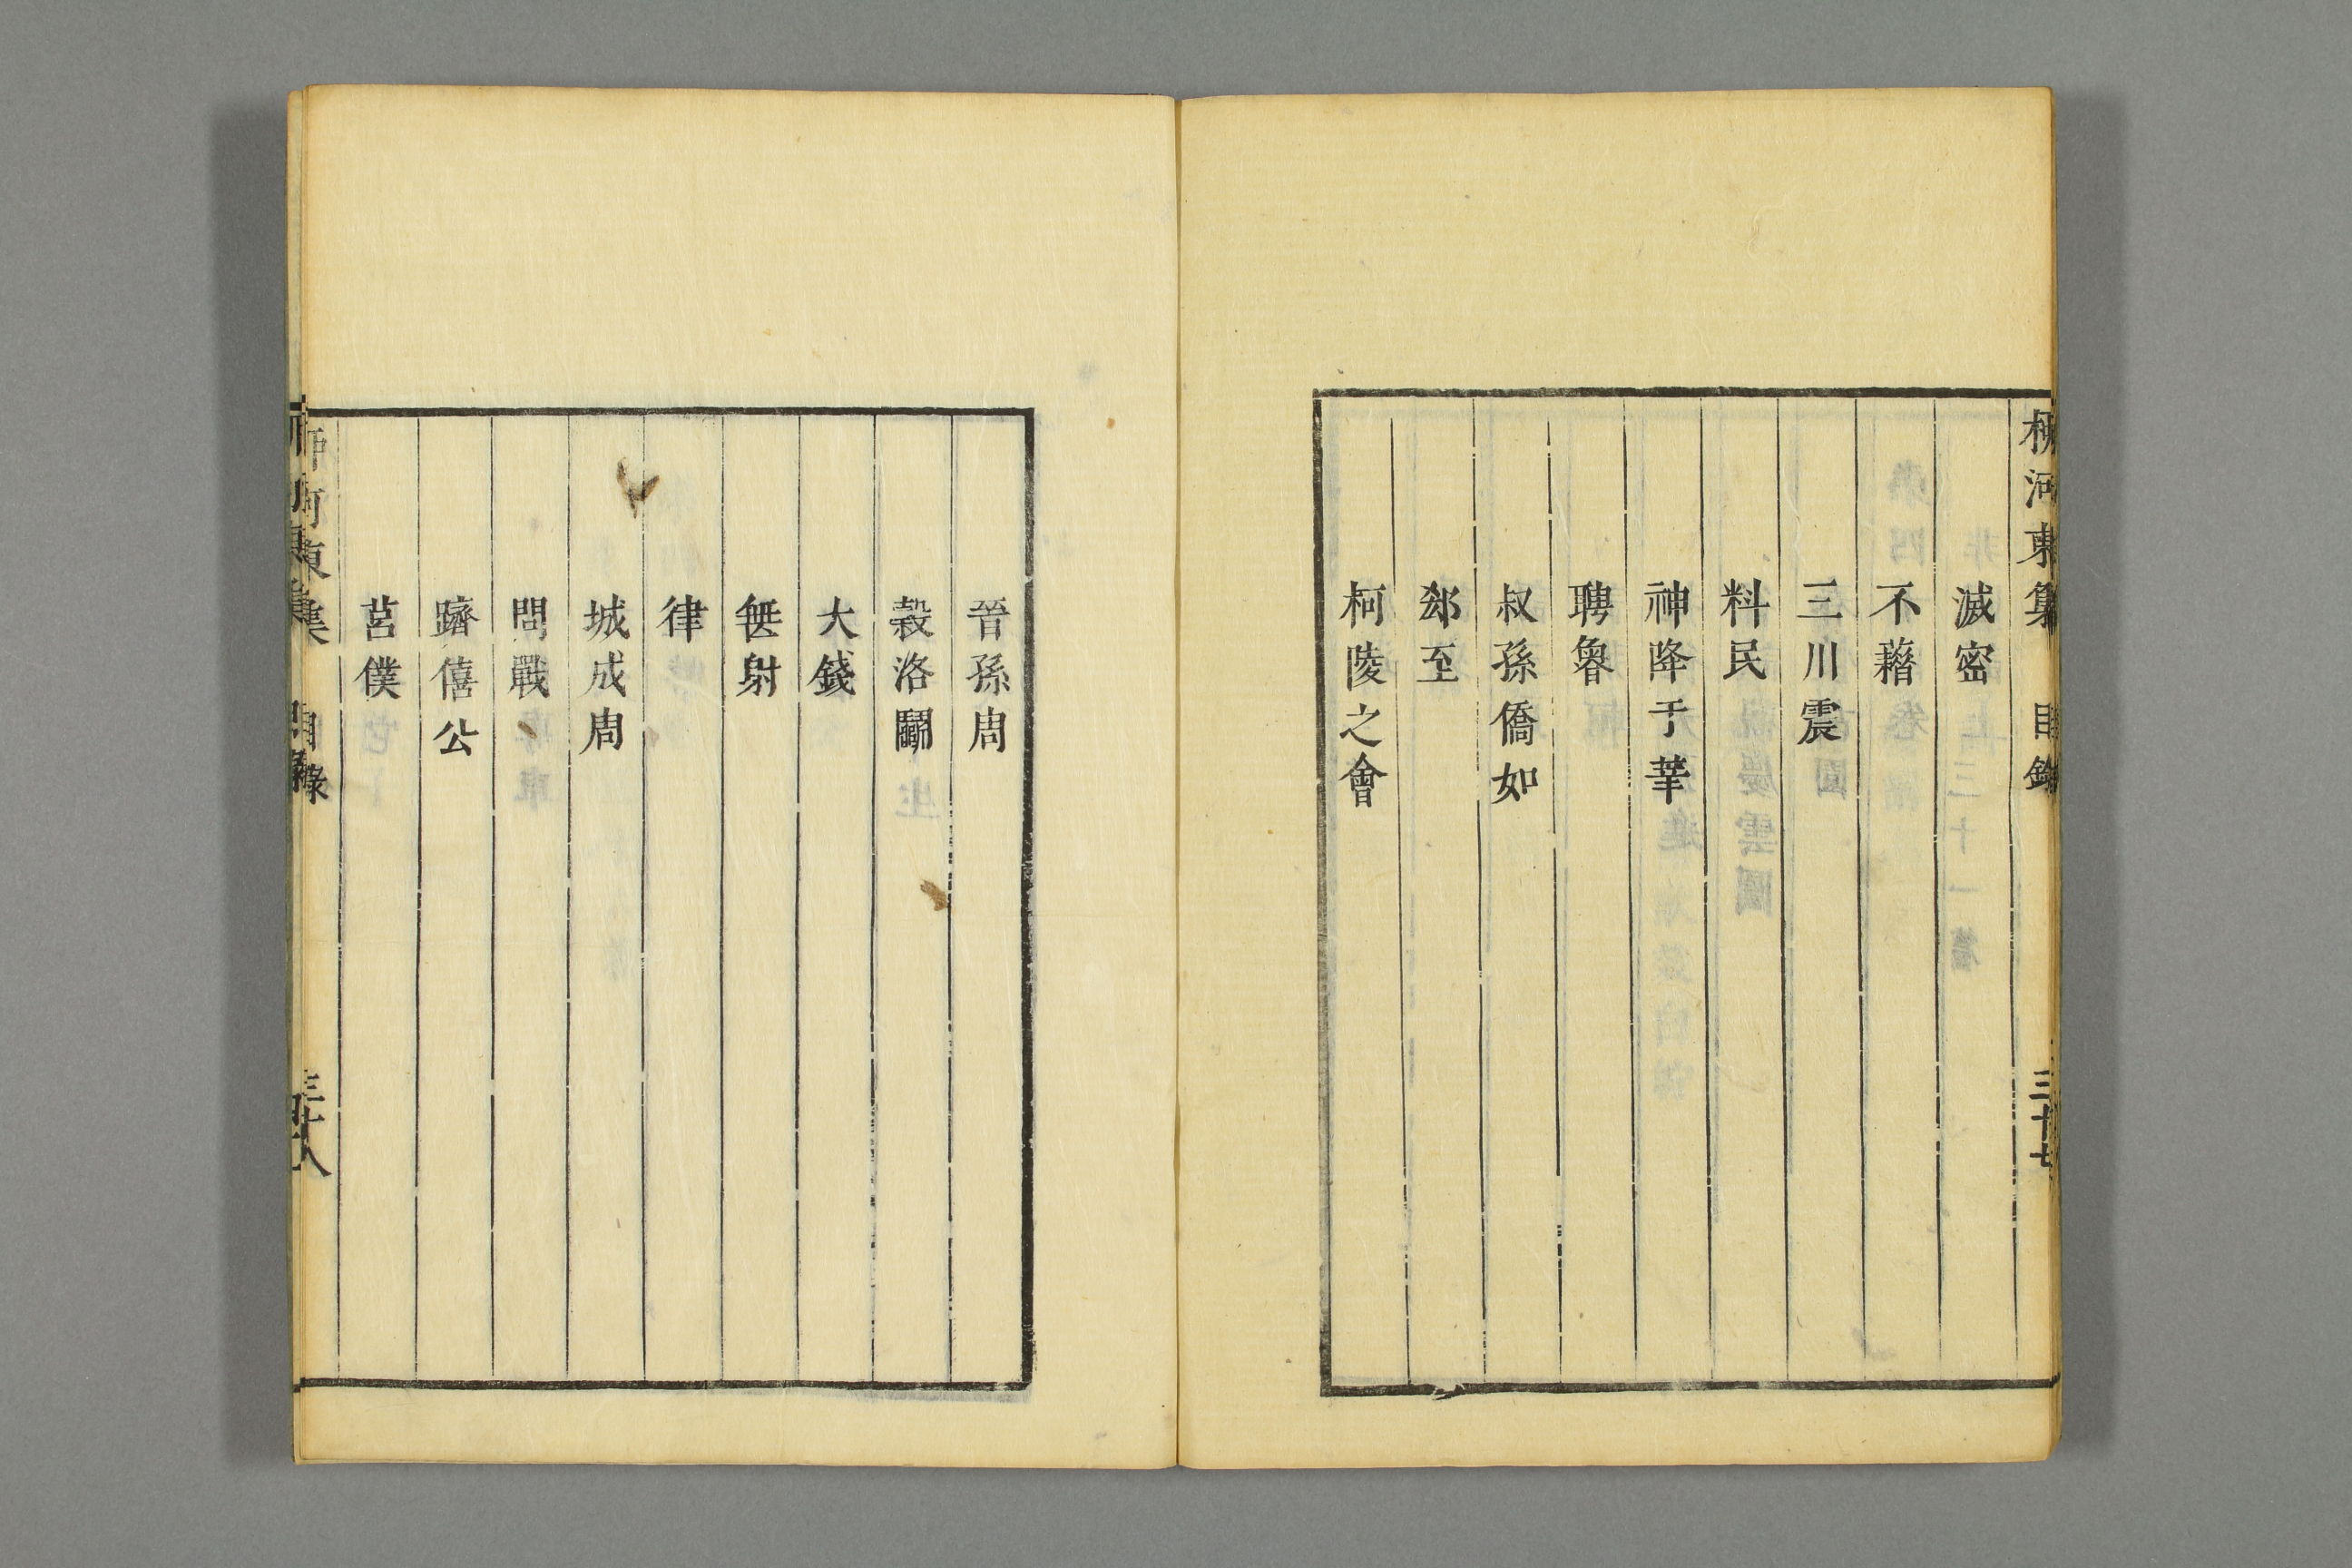 柳河東集 目錄 三十七
滅密
不藉
三川震
料民
神降于莘
聘魯
叔孫僑如
郄至
柯陵之會
晉孫周
穀洛鬭
大錢
無射
律
城成周
問戰
躋僖公
莒僕
柳河東集 目錄 三十八